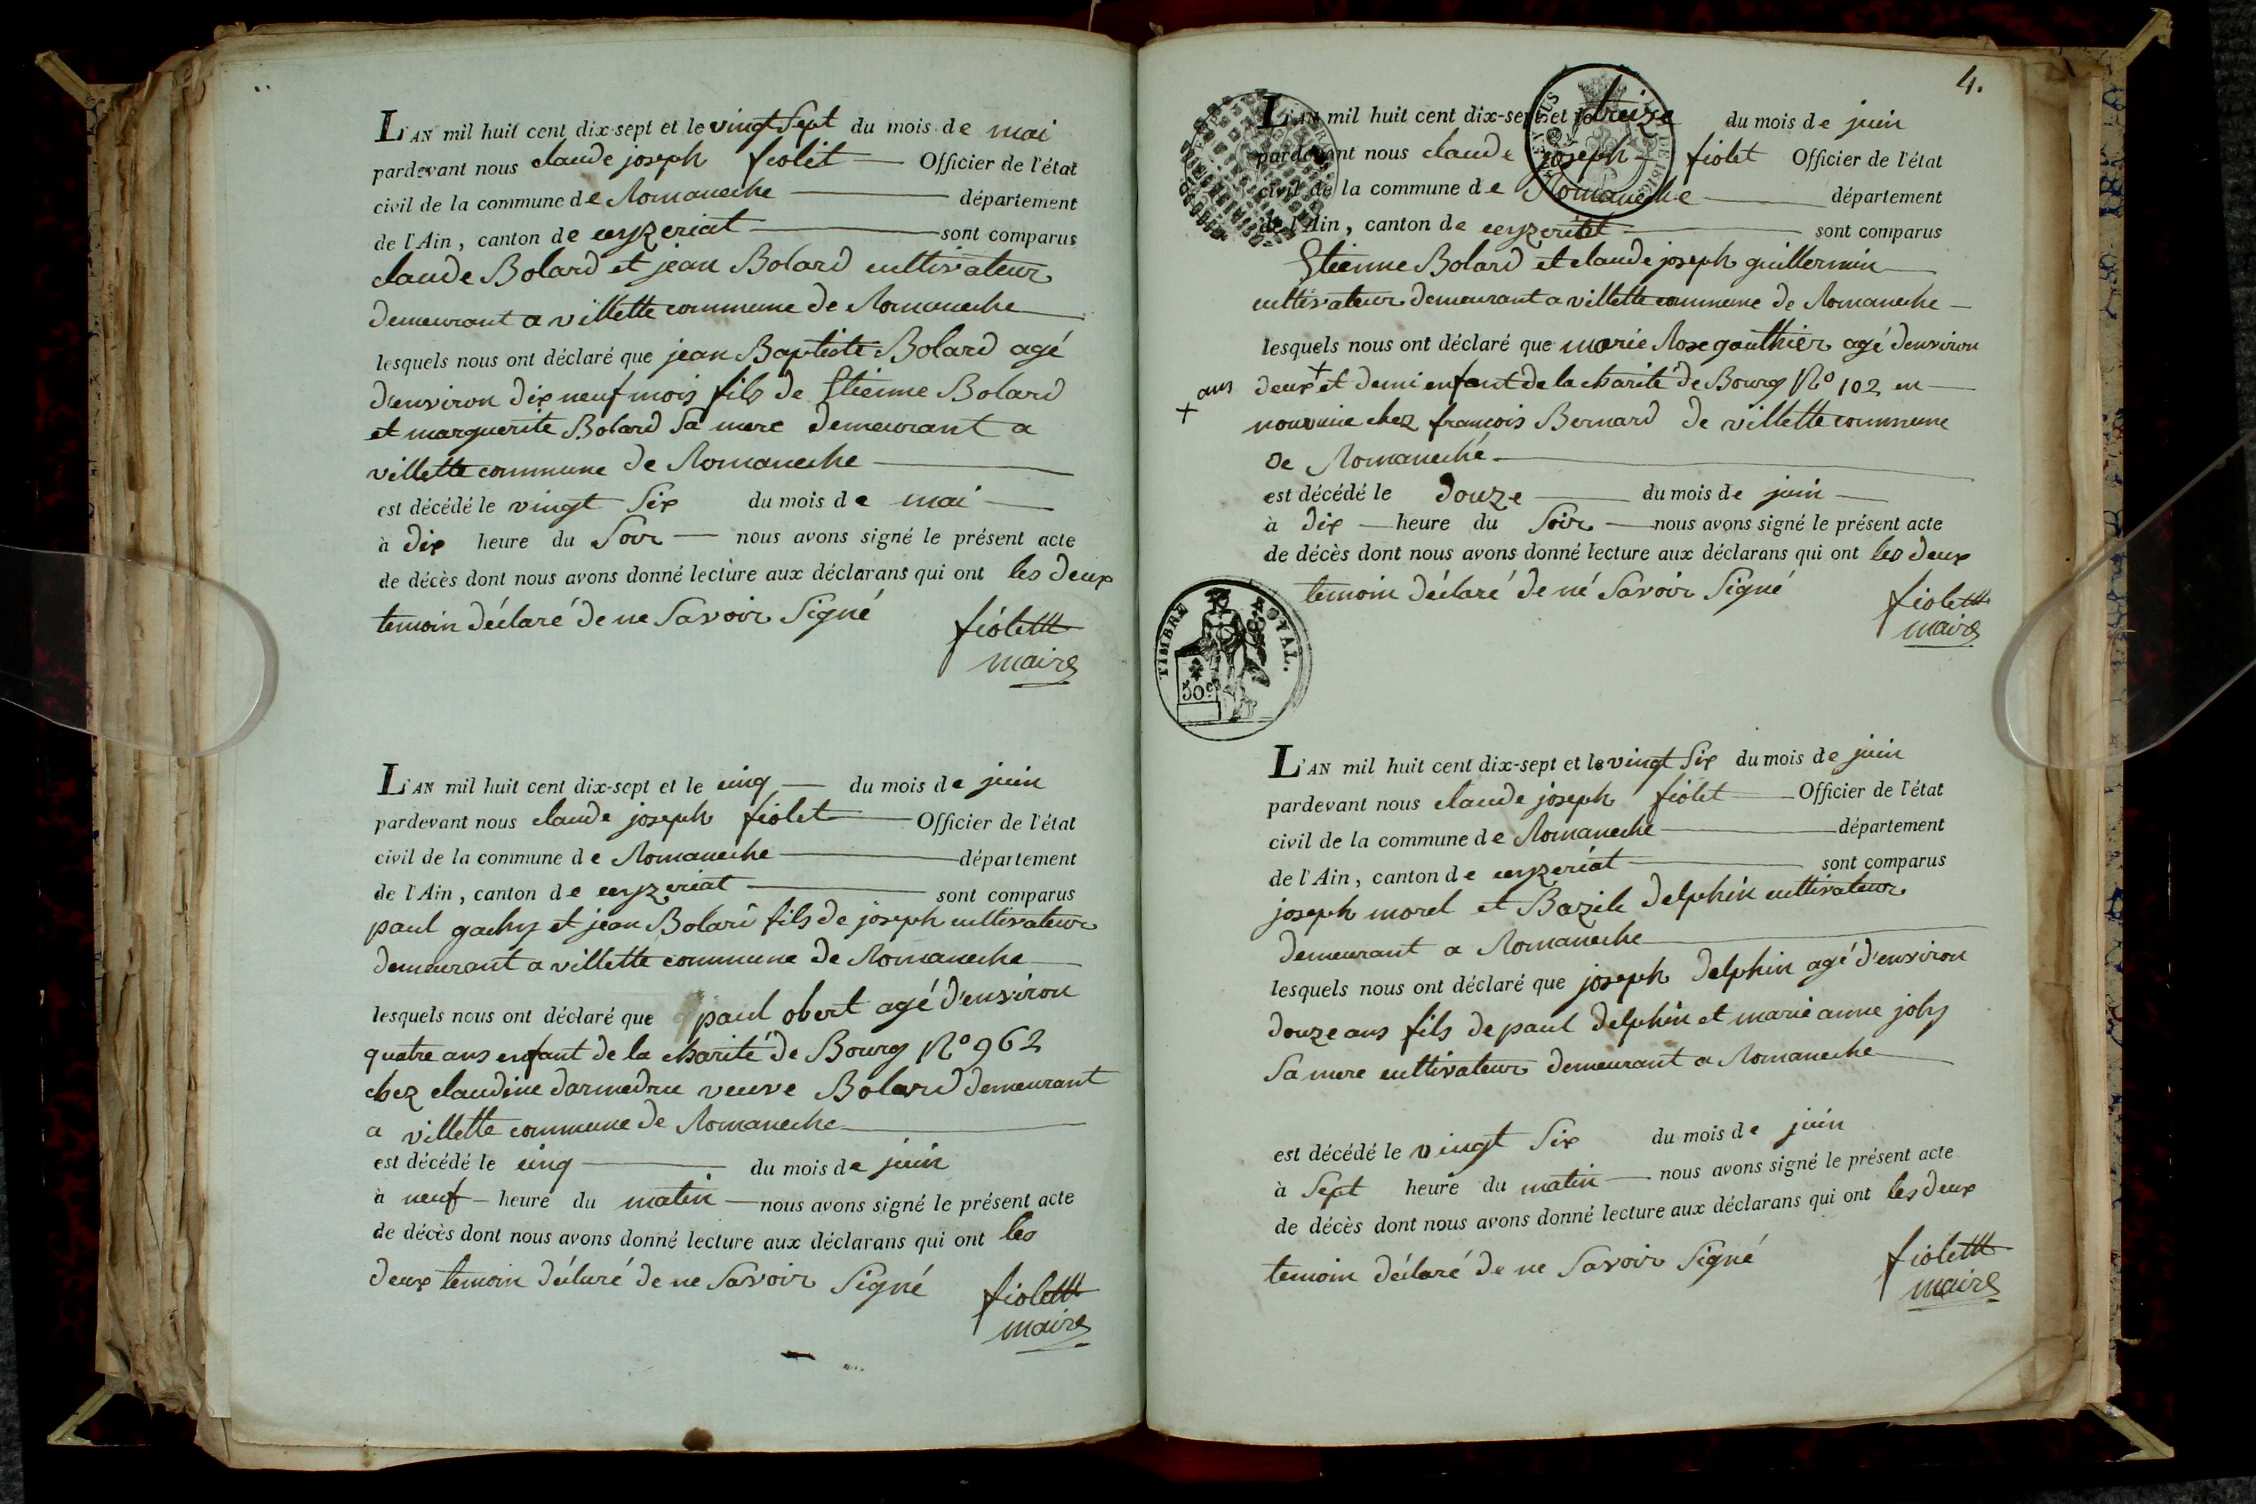 L'AN mil huit cent dix-sept et le vingt Sept du mois de mai
pardevant nous claude joseph fiolet Officier de l'état
civil de la commune de Romaneche département
de l'Ain, canton de ceyzeriat sont comparus
claude Bolard et jean Bolard cultivateur
demeurant a villette commune de Romaneche
lesquels nous ont déclaré que jean Baptiste Bolard agé
d'environ dix neuf mois fils de Etienne Bolard
et marguerite Bolard Sa mere demeurant a
villette commune de Romaneche
est décédé le vingt Six du mois de mai
à dix heure du Soir nous avons signé le présent acte
de décès dont nous avons donné lecture aux déclarans qui ont les deux
temoin déclaré de ne Savoir Signé
fiolet
maire
L'AN mil huit cent dix-sept et le cinq du mois de juin
pardevant nous claude joseph fiolet Officier de l'état
civil de la commune de Romaneche département
de l'Ain, canton de ceyzeriat sont comparus
paul gachy et jean Bolard fils de joseph cultivateur
demeurant a villette commune de Romaneche
lesquels nous ont déclaré que paul obert agé d'environ
quatre ans enfant de la charité de Bourg No 962
chez claudine darmedru veuve Bolard demeurant
a villette commune de Romaneche
est décédé le cinq du mois de juin
à neuf heure du matin nous avons signé le présent acte
de décès dont nous avons donné lecture aux déclarans qui ont les
deux temoin déclaré de ne Savoir Signé
fiolet
maire
4.
L'AN mil huit cent dix-sept et le treize du mois de juin
pardevant nous claude joseph fiolet Officier de l'état
civil de la commune de Romaneche département
de l'Ain, canton de ceyzeriat sont comparus
Etienne Bolard et claude joseph guillermin
cultivateur demeurant a villette commune de Romaneche
lesquels nous ont déclaré que marie Rose gauthier agé d'environ
deux + et demi enfant de la charité de Bourg No 102 en
+ ans
nourrice chez françois Bernard de villette commune
de Romaneché
est décédé le douze du mois de juin
à dix heure du Soir nous avons signé le présent acte
de décès dont nous avons donné lecture aux déclarans qui ont les deux
temoin déclaré de né Savoir Signé
fiolet
maire
TIMBRE ROYAL.
50c
L'AN mil huit cent dix-sept et le vingt Six du mois de juin
pardevant nous claude joseph fiolet Officier de l'état
civil de la commune de Romaneche département
de l'Ain, canton de ceyzeriat sont comparus
joseph morel et Bazile delphin cultivateur
demeurant a Romaneche
lesquels nous ont déclaré que joseph delphin agé d'environ
douze ans fils de paul delphin et marie anne joly
Sa mere cultivateur demeurant a Romaneche
est décédé le vingt Six du mois de juin
à Sept heure du matin nous avons signé le présent acte
de décès dont nous avons donné lecture aux déclarans qui ont les deux
temoin déclaré de ne Savoir Signé
fiolet
maire